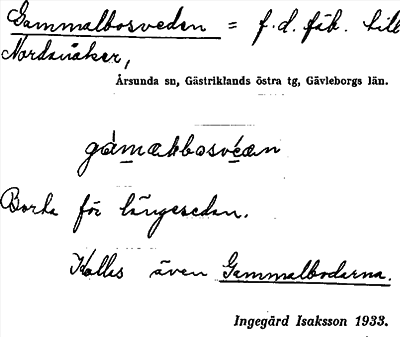 Gammalbosveden = f.d. fäb. till
Nordanåker,
Årsunda sn, Gästriklands östra tg, Gävleborgs län.
Borta för längesedan.
Kallas även Gammalbodarna.
Ingegärd Isaksson 1933.